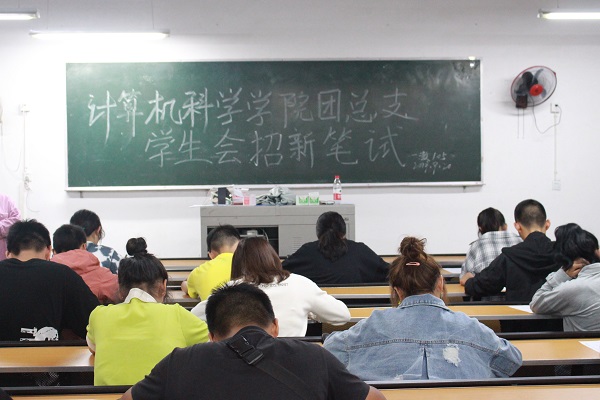 计算机科学学院团总支
学生会招新笔试